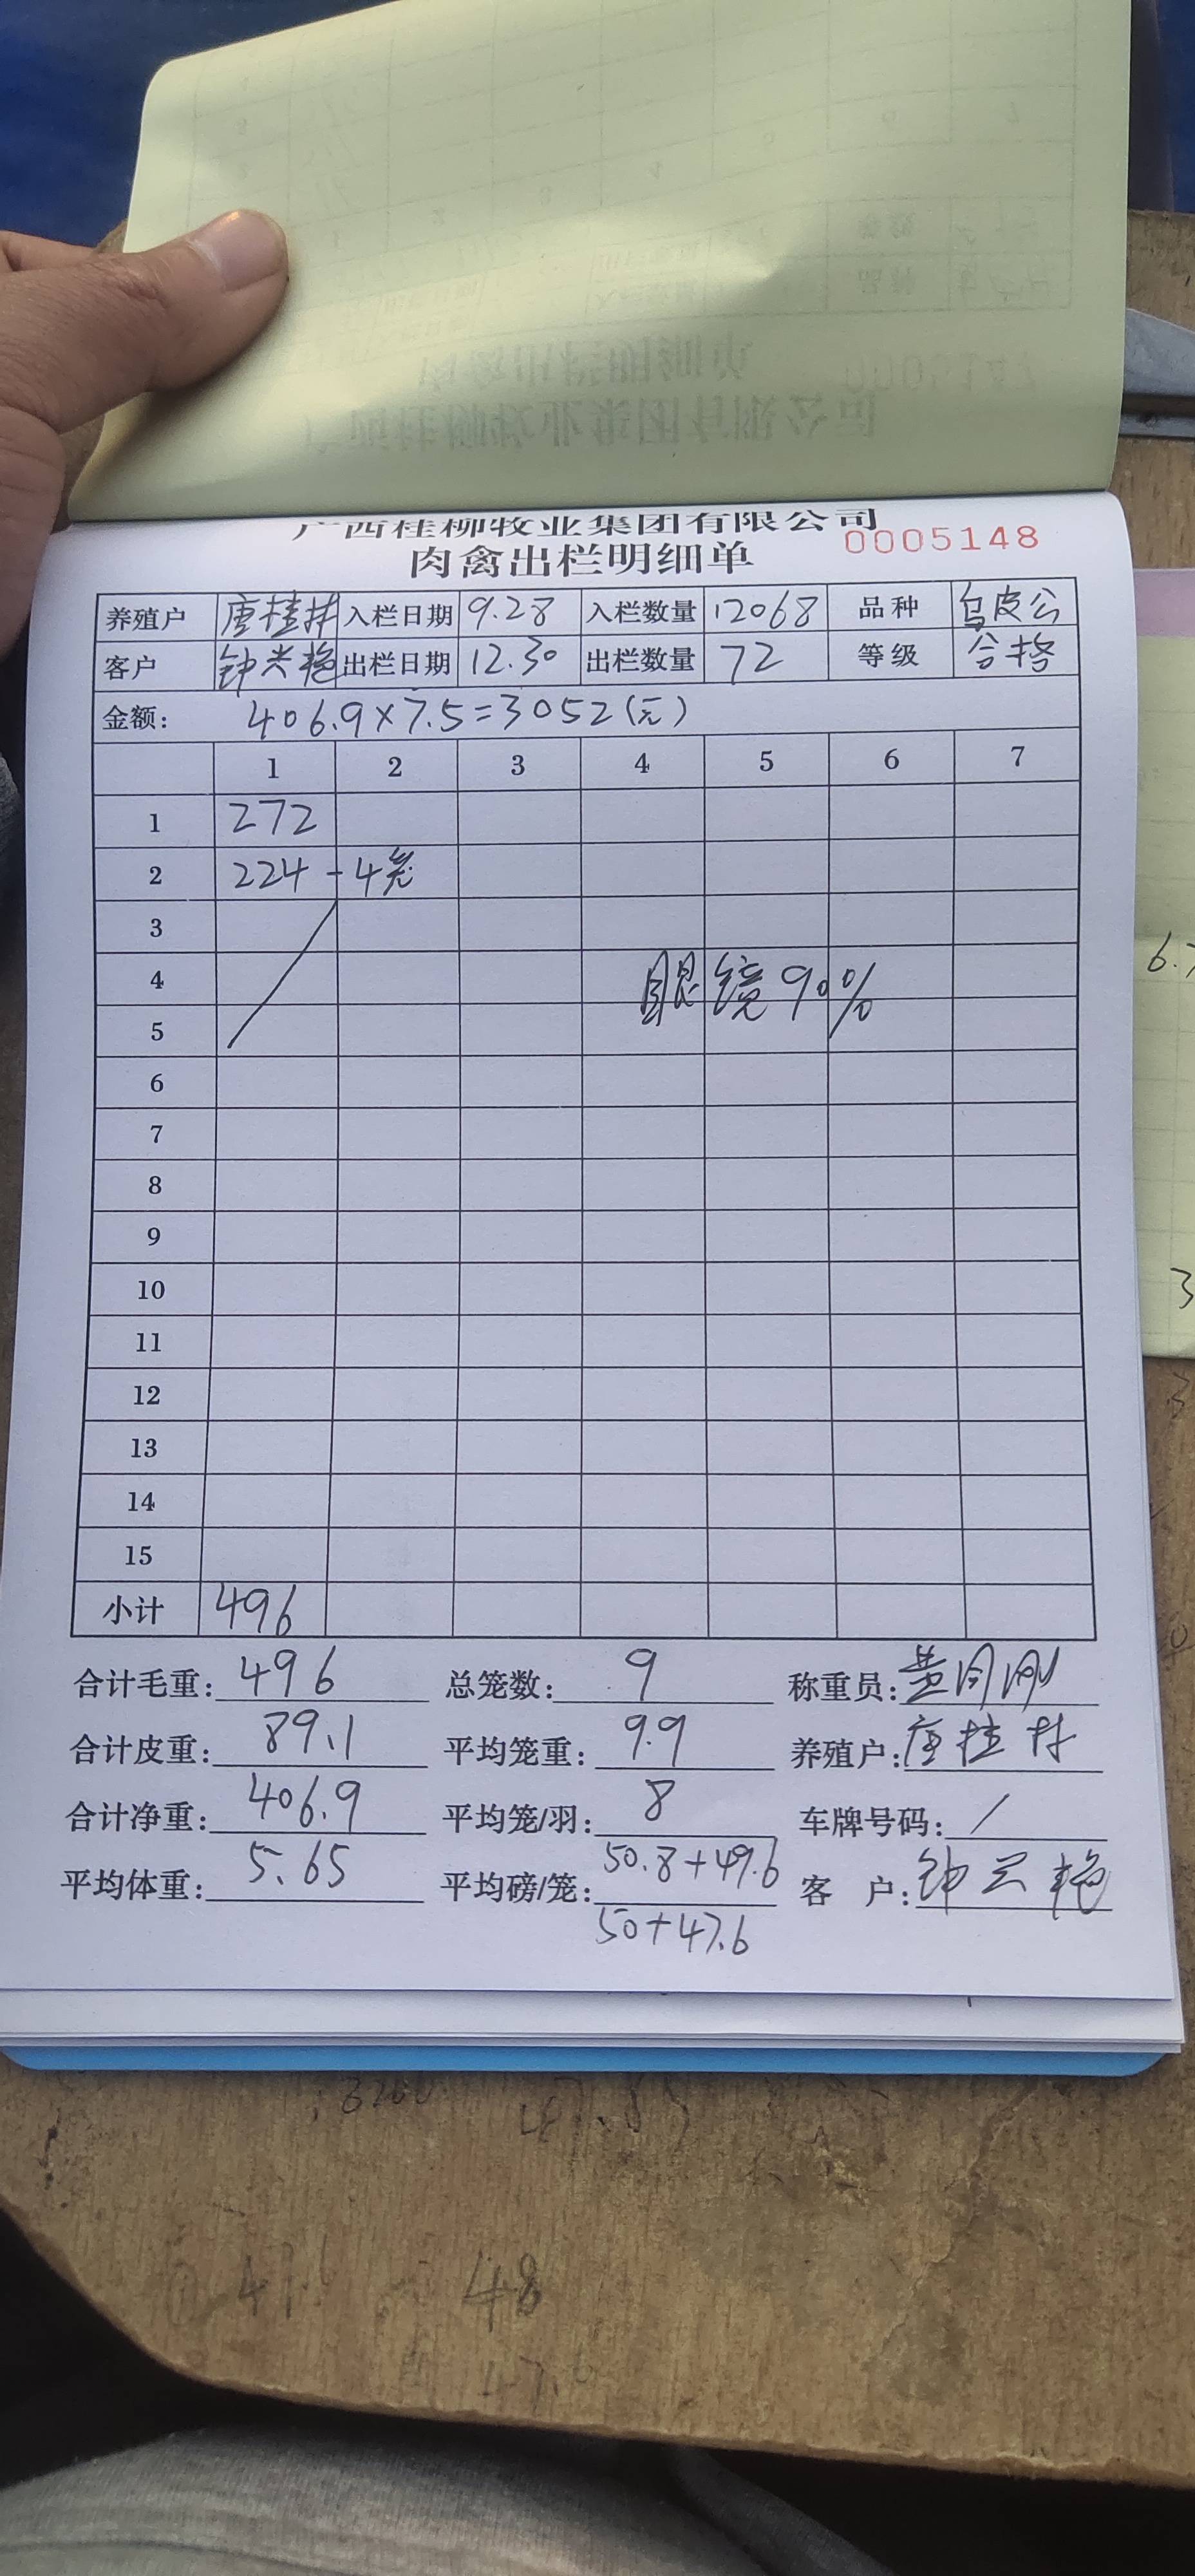 广西桂柳牧业集团有限公司
肉禽出栏明细单 0005148
养殖户 唐桂林 入栏日期 9.28 入栏数量 12068 品种 乌皮公
客户 钟兰艳 出栏日期 12.30 出栏数量 72 等级 合格
金额: 406.9×7.5=3052(元)
1 2 3 4 5 6 7
1 272
2 224 - 4笼
3
4 眼镜90%
5
6
7
8
9
10
11
12
13
14
15
小计 496
合计毛重: 496 总笼数: 9 称重员:
合计皮重: 89.1 平均笼重: 9.9 养殖户: 唐桂林
合计净重: 406.9 平均笼/羽: 8 车牌号码: /
平均体重: 5.65 平均磅/笼: 50.8+49.6 客 户: 钟兰艳
50+47.6
48